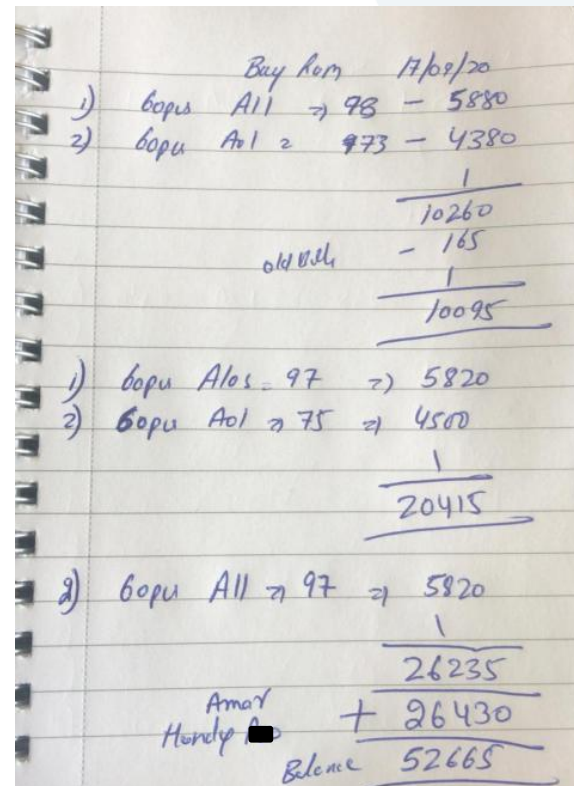 Buy from 17/09/20
1) 60pcs A11 => 98 - 5880
2) 60pcs A01 = 73 - 4380
10260
old - 165
10095
1) 60pcs A10s = 97 => 5820
2) 60pcs A01 => 75 => 4500
20415
2) 60pcs A11 => 97 => 5820
26235
Amar
+ 26430
Handy
Balance 52665